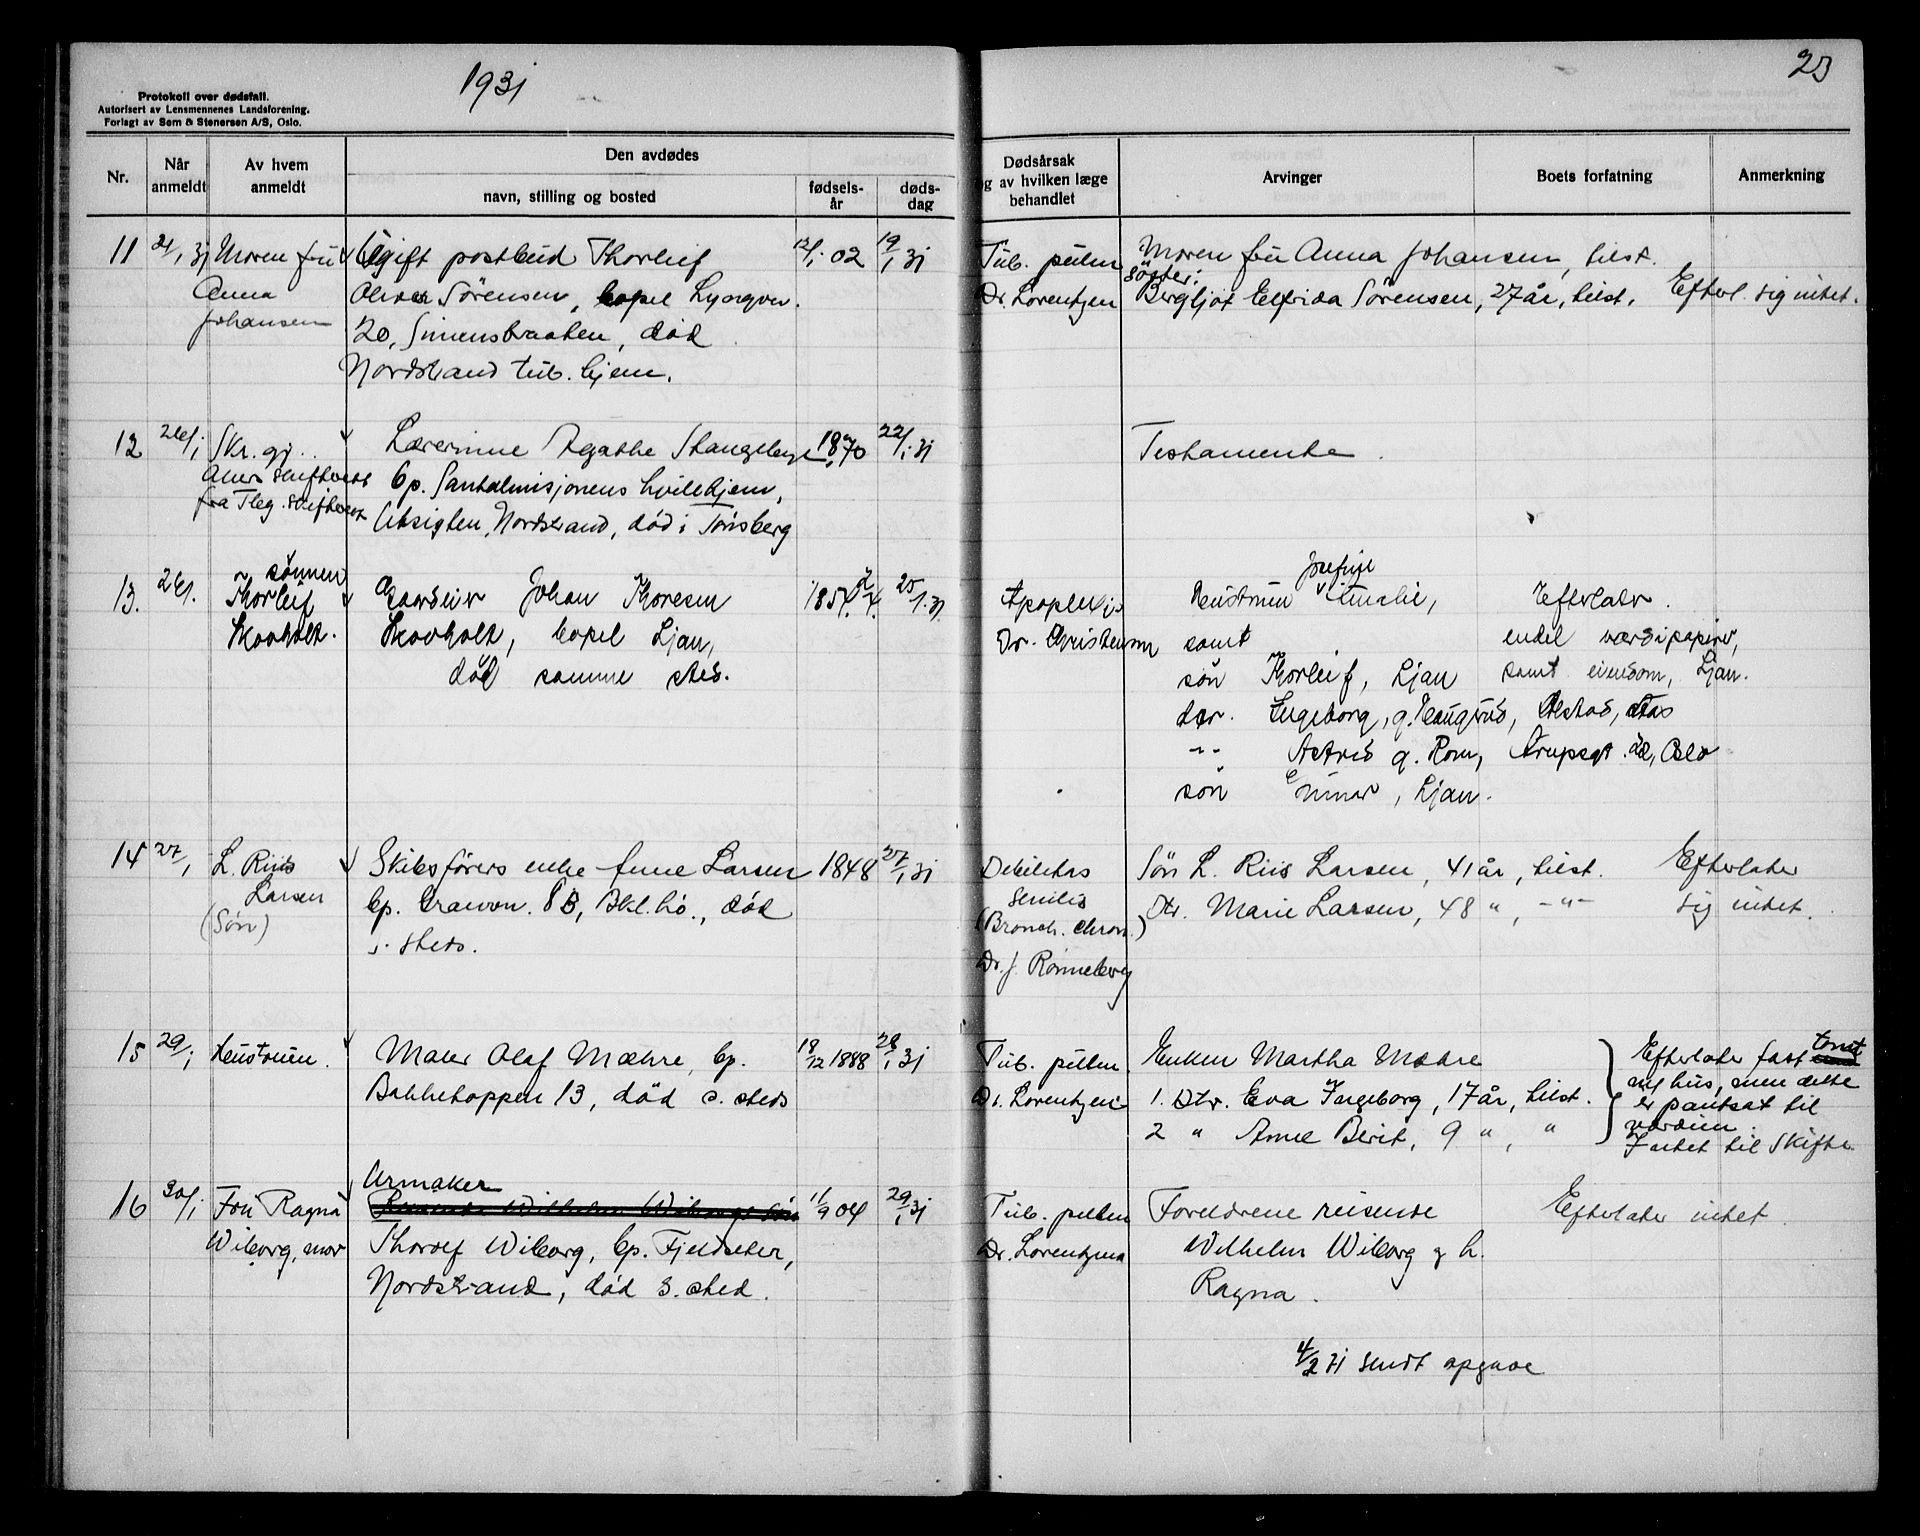 1931
23
Protokoll over dødsfall.
Autorisert av Lensmennenes Landsforening.
Forlagt av Sem & Stenersen A/S, Oslo.
Nr.
Når anmeldt
Av hvem anmeldt
Den avdødes
navn, stilling og bosted
fødsels-år
døds-dag
Dødsårsak
og av hvilken læge
behandlet
Arvinger
Boets forfatning
Anmerkning
11 21/1 31 Moren fru
Anna
Johansen
Ugift postbud Thorleif
Oliver Sörensen, bopel Lyngvn.
20, Simensbraaten, död
Nordstrand tub. hjem.
12/1 02 19/1 31
Tub. pulm
Dr. Lorentzen
Moren fru Anna Johansen, tilst.
söster:
Bergljot Elfrida Sörensen, 27 år, tilst. Efterl. sig intet.
12 26/1 Skr. gj.
skifterett
fra Tbg. skifterett
Lærerinne Agathe Stangeberg
bp. Santalmisjonens hvilehjem,
Utsigten, Nordstrand, död i Tönsberg
1870 22/1 31
Testamente.
13. 26/1. sönnen
Thorleif
Skovholt.
Gårdeier Johan Thoresen
Skovholt, bopel Ljan,
död samme sted.
1857 25/1. 31.
Apoplexis
Dr. Christensen
Hustruen Josefine Amalie,
samt
sön Thorleif, Ljan
dtr. Ingeborg, g. Haugrud,
-"- Astrid g. Rom, Arupsgt. 22, Oslo
sön Gunnar, Ljan.
Efterlater.
endel værdipapirer,
samt eiendom, Ljan.
14 27/1 L. Riis
Larsen
(Sön)
Skibsförers enke Anne Larsen
bp. 8 B, Bkl.hö., död
s. steds.
1848 27/1 31
Debilitas
senilis
(Bronch. chron.)
Dr. J. Rönneberg
Sön L. Riis Larsen, 41 år, tilst.
Dtr. Marie Larsen, 48 ", -"-
Efterlater
sig intet.
15 29/1 Hustruen.
Maler Olaf Mæhre, bp.
Bakketoppen 13, död s. steds
18/12 1888 28/1 31
Tub. pulm.
Dr. Lorentzen
Enken Martha Mæhre
1. Dtr. Eva Ingeborg, 17 år, tilst.
2 " Anne Berit, 9 ", "
Efterlater fast tomt
m/hus, men dette
er pantsat til
værdien.
Intet til skifte
16 30/1 Fru Ragna
Wiborg, mor
Urmaker
Thorolf Wiborg, bp. Fjeldseter,
Nordstrand, död s. sted.
11/9 04 29/1 31
Tub. pulm
Dr. Lorentzen
Foreldrene reisende
Wilhelm Wiborg og h.
Ragna.
Efterlater intet.
4/2 31 sendt opgave